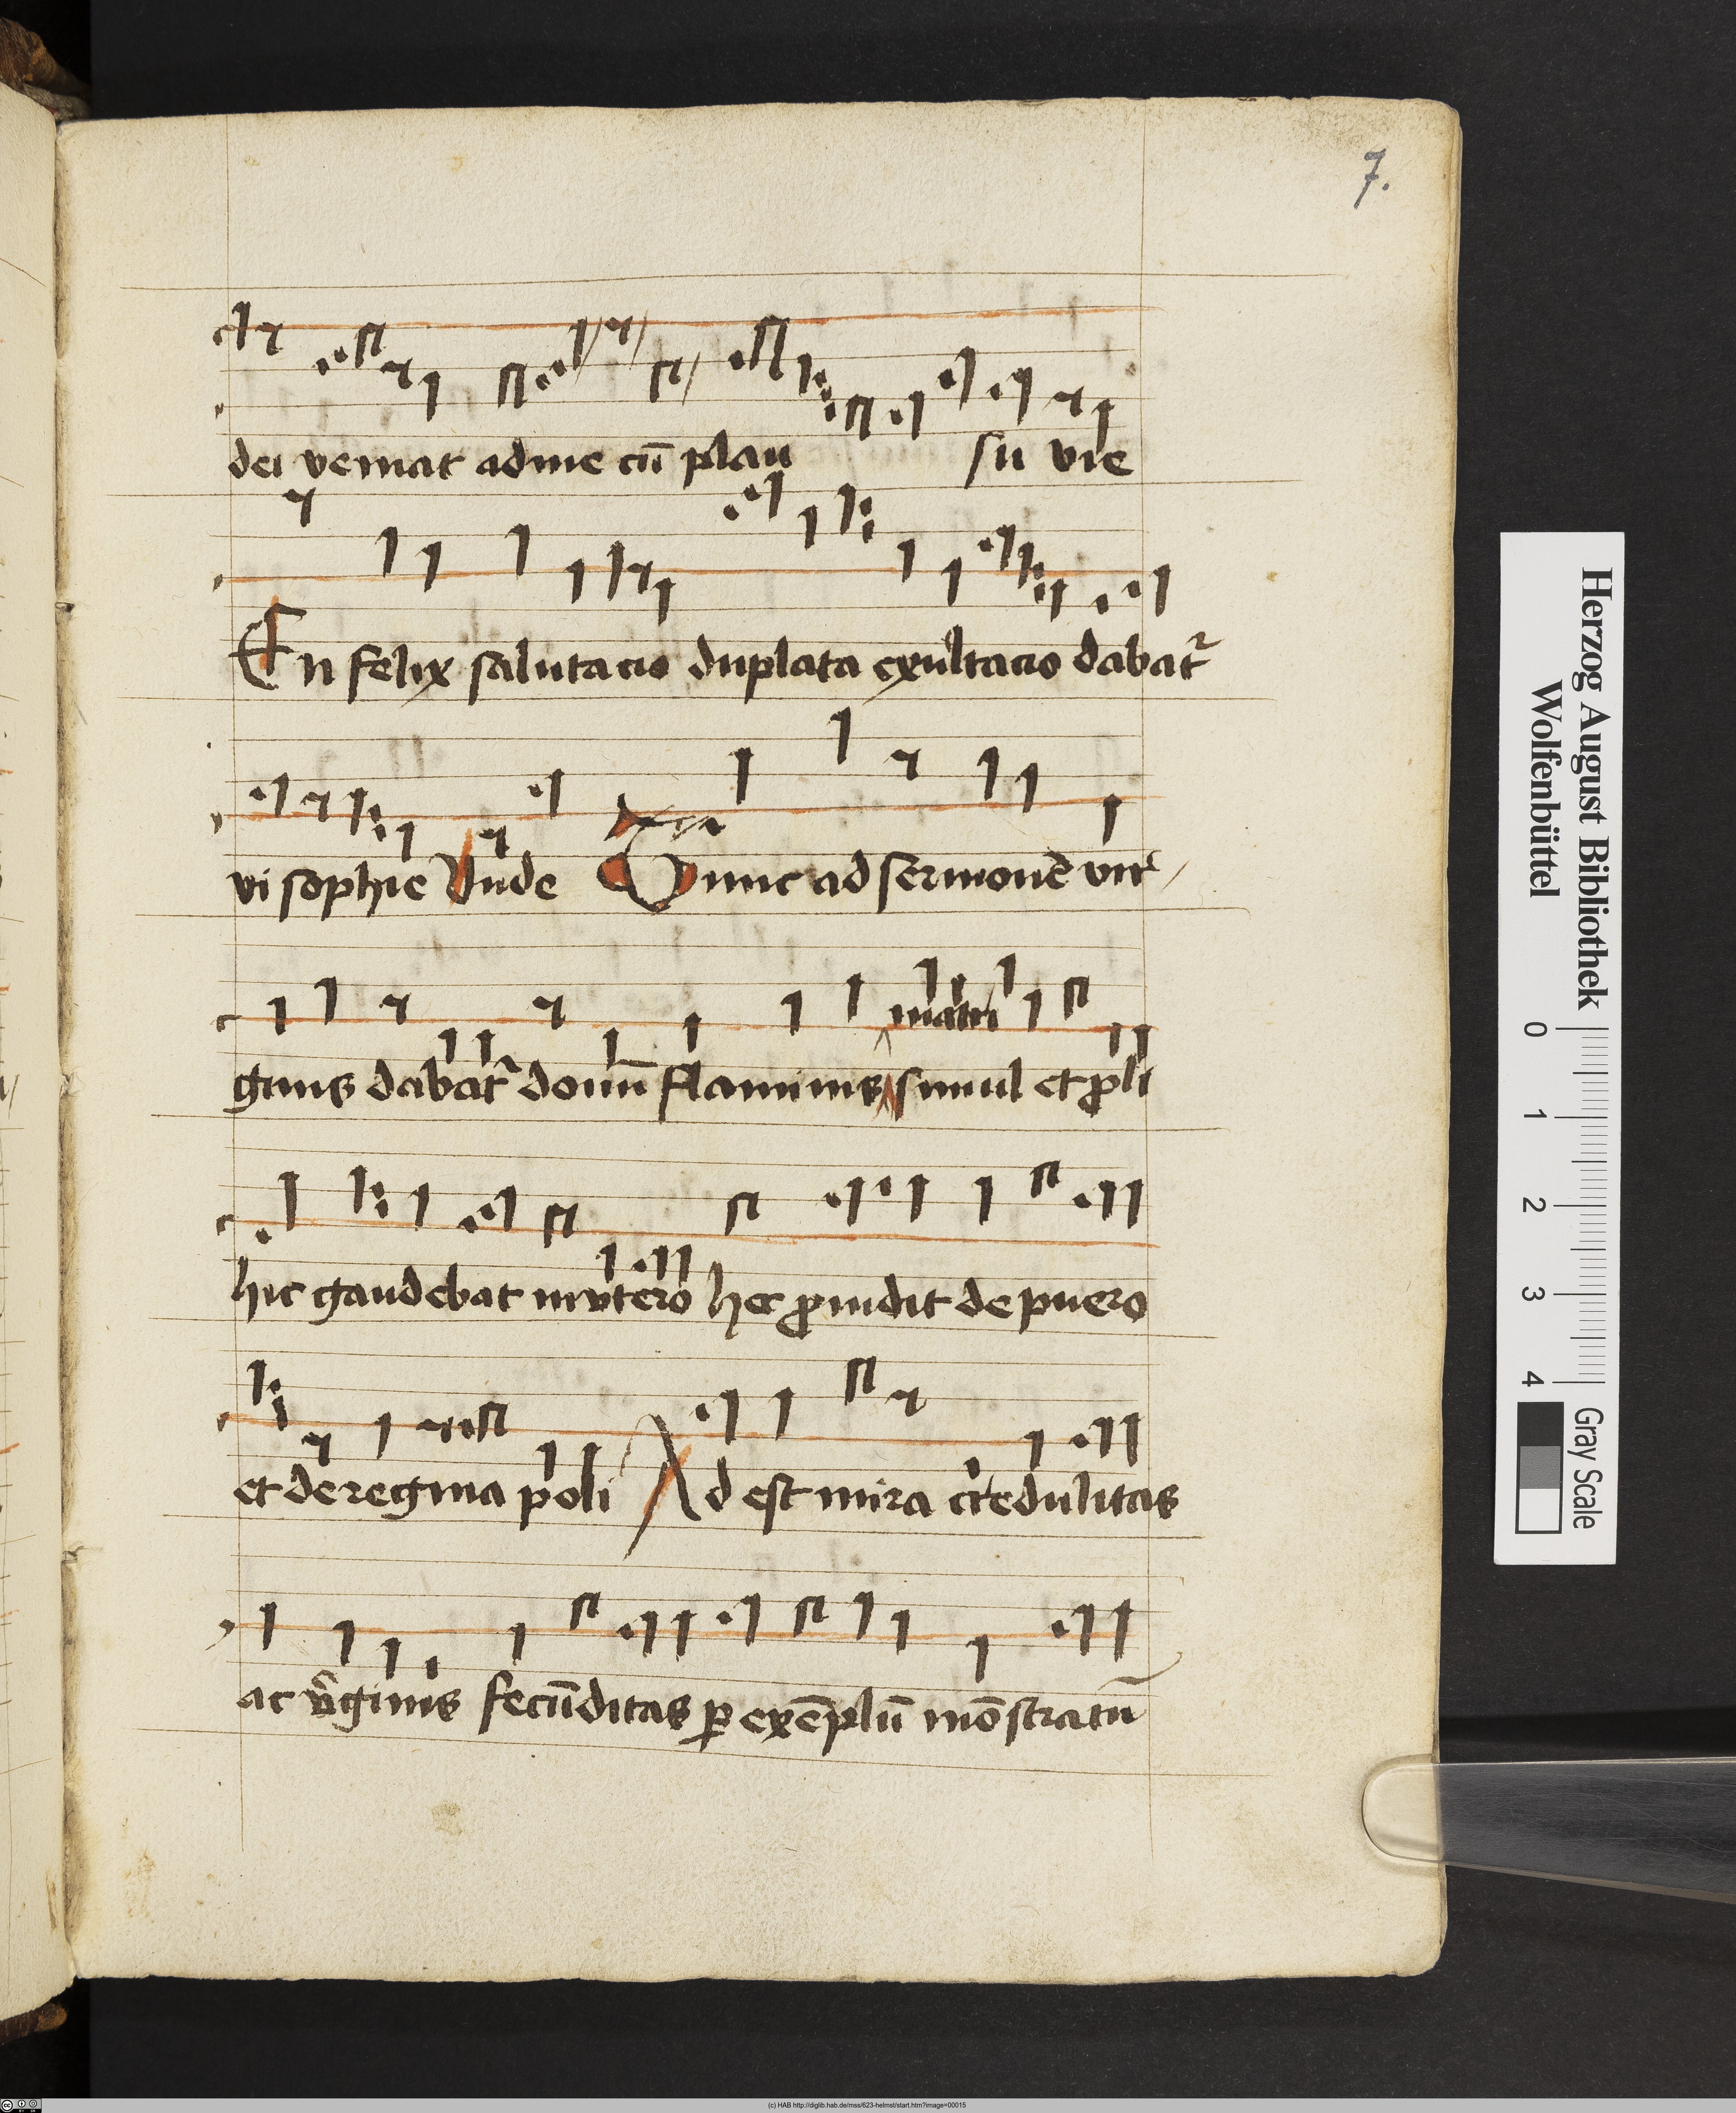 7.
dei veniat ad me cū plau su vie
En felix salutacio duplata exultacio dabat᷑
vi sophie Unde Tunc ad sermonē vir
matri
ginis dabat᷑ donū flaminis simul et ꝓli
hic gaudebat in vtero hec ꝓuidit de puero
et de regina poli Ad est mira credulitas
ac v̄ginis fecūditas ꝑ exēplū mōstratū
Herzog August Bibliothek
Wolfenbüttel
0 1 2 3 4
Gray Scale
(c) HAB http://diglib.hab.de/mss/623-helmst/start.htm?image=00015